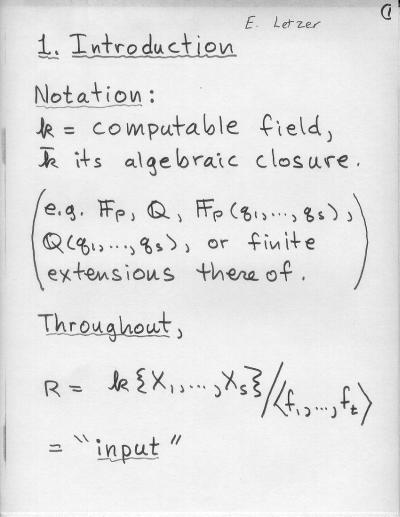 E. Letzer
①
1. Introduction
Notation:
k = computable field,
k̄ its algebraic closure.
(e.g. 𝔽p, Q, 𝔽p(q₁,...,qₛ),
Q(q₁,...,qₛ), or finite
extensions thereof.)
Throughout,
R = k{X₁,...,Xₛ}/⟨f₁,...,fₜ⟩
= "input"